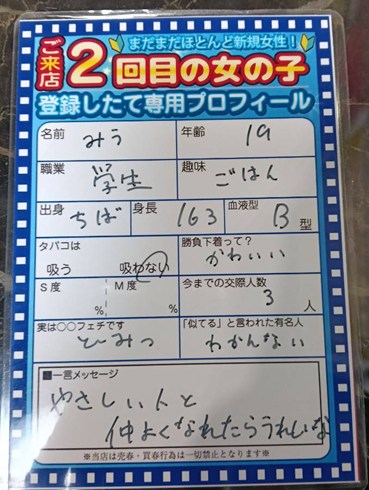 まだまだほとんど新規女性！
ご来店2回目の女の子
登録したて専用プロフィール
名前 みう 年齢 19
職業 学生 趣味 ごはん
出身 ちば 身長 163 血液型 B型
タバコは 吸う 吸わない 勝負下着って？ かわいい
S度 % M度 % 今までの交際人数 3人
実は○○フェチです ひみつ 「似てる」と言われた有名人 わかんない
■一言メッセージ
やさしい人と
仲よくなれたらうれしいな
※当店は売春・買春行為は一切禁止となります※